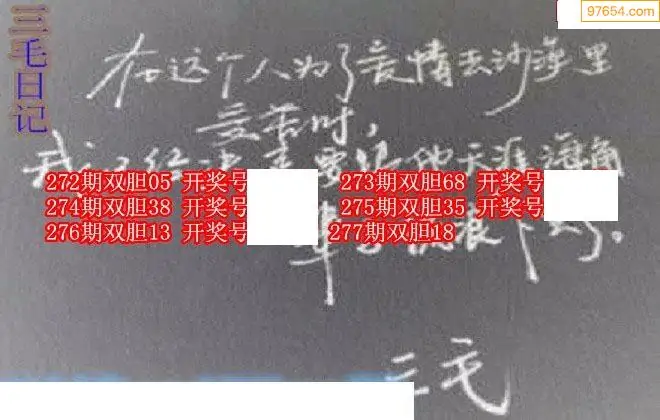 97654.com
三毛日记
在这个人为了爱情去沙漠里
受苦时,
我 要跟他天涯海角
272期双胆05 开奖号 273期双胆68 开奖号
274期双胆38 开奖号 275期双胆35 开奖号
276期双胆13 开奖号 277期双胆18
辈子流浪下去了。
三毛